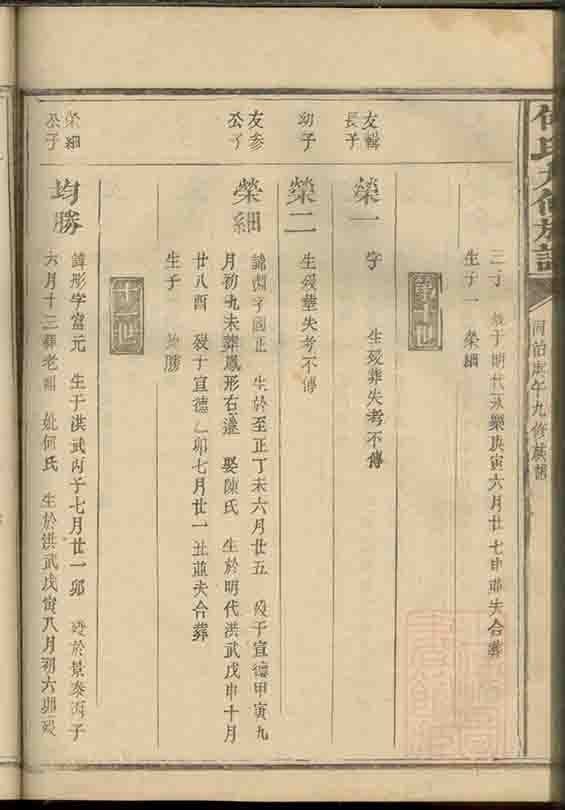 同治庚午九修族譜
三寸 歿于明代永樂庚寅六月廿七申並夫合葬
生子一 榮細
第十世
友輯長子
榮一
字 生歿葬失考不傳
幼子
榮二
生歿塟失考不傳
友参公子
榮細
諱 字國正 生於至正丁未六月廿五 歿于宣德甲寅九
月初九未葬鳳形右邊 娶陳氏 生於明代洪武戊申十月
廿八酉 歿于宣德乙卯七月廿一丑並夫合葬
生子 均勝
十一世
榮細公子
均勝
諱彤字富元 生于洪武丙子七月廿一卯 歿於景泰丙子
六月十三葬老 妣何氏 生於洪武戊寅八月初六卯歿